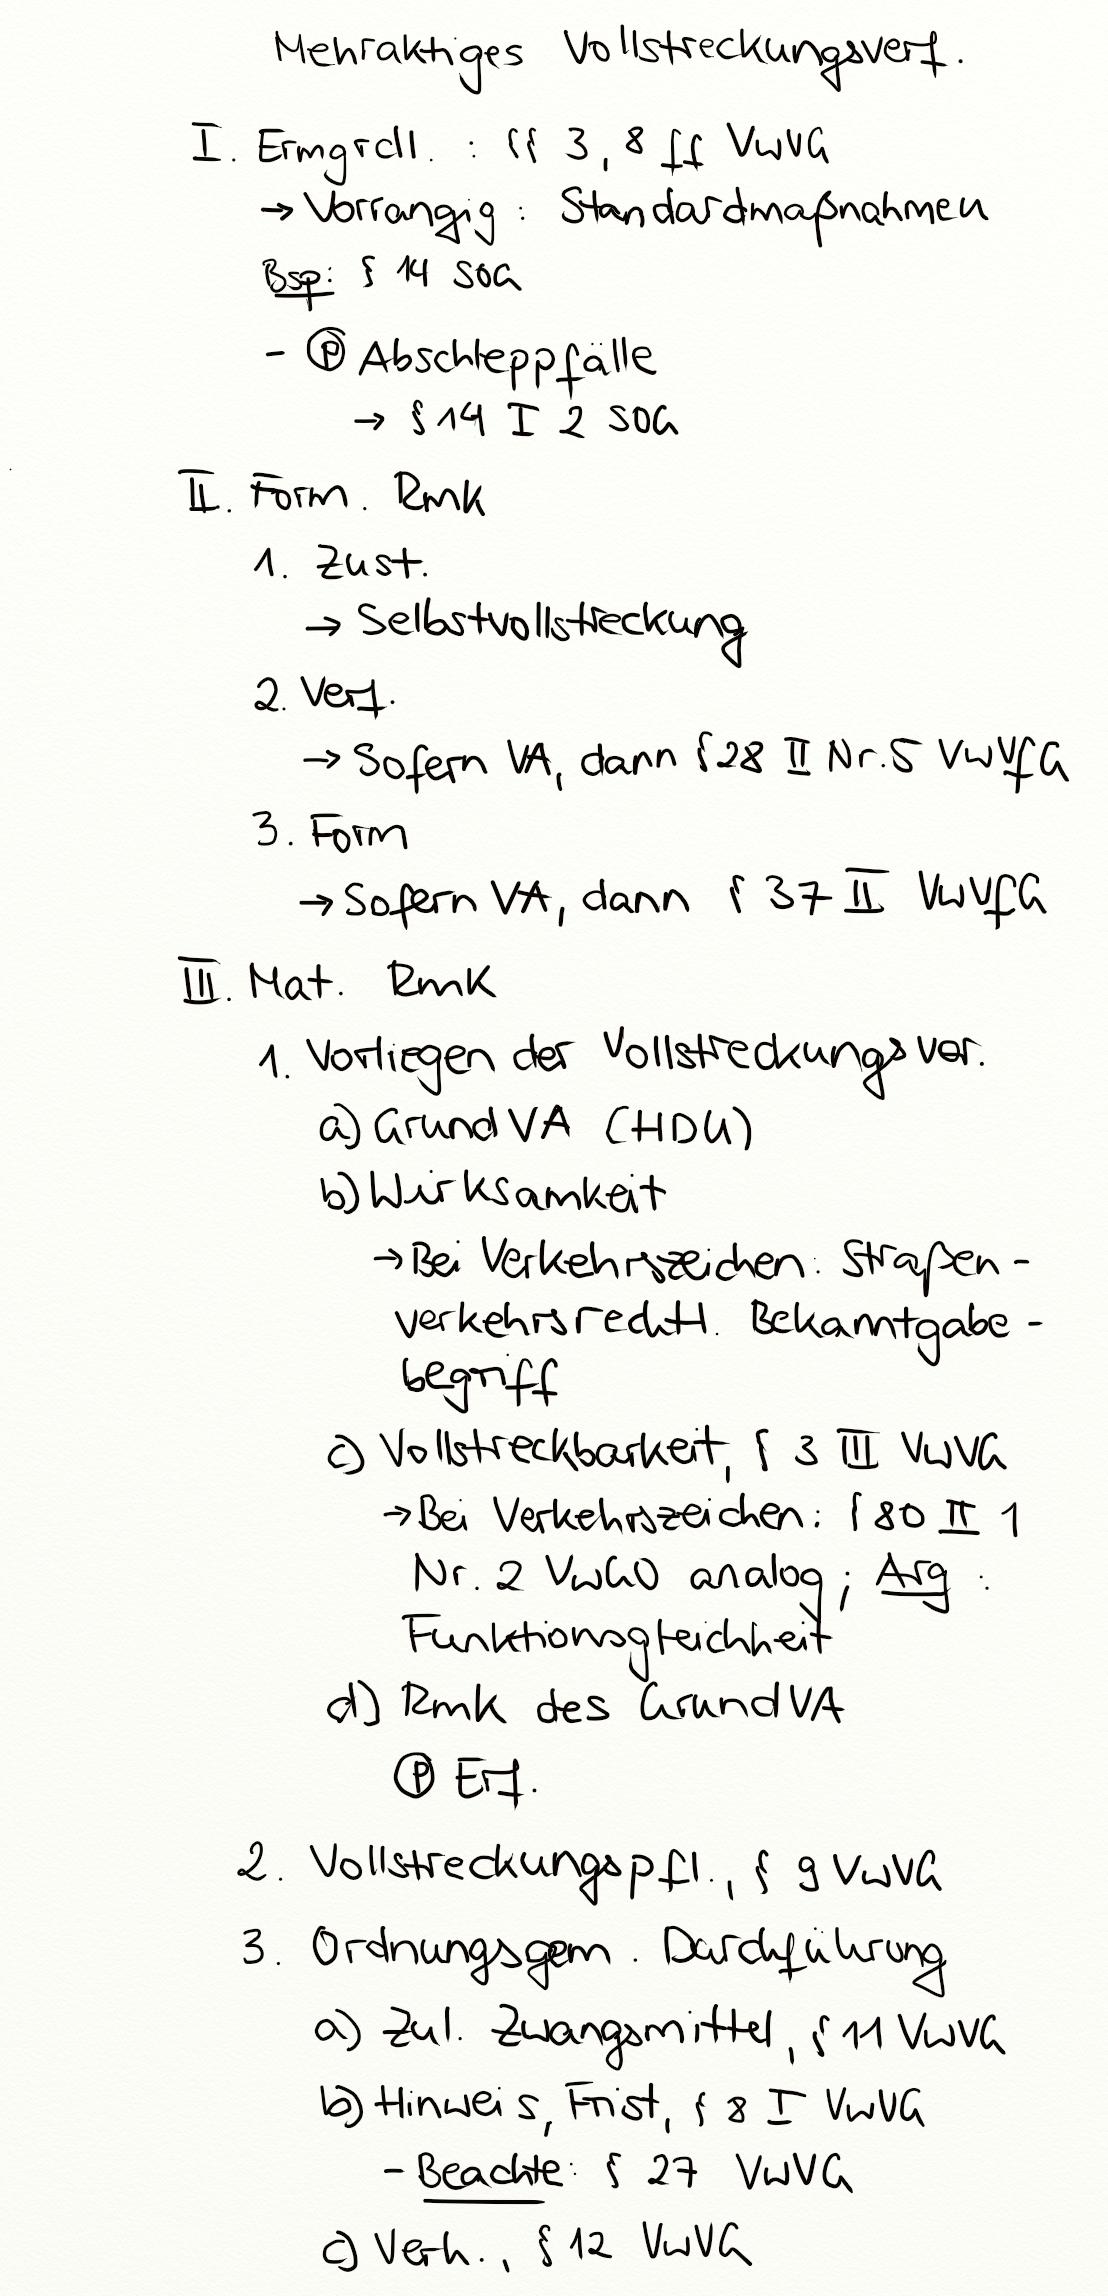 Mehraktiges Vollstreckungsverf.
I. Ermgrdl. : §§ 3, 8 ff VwVG
→ Vorrangig : Standardmaßnahmen
Bsp: § 14 SOG
- Ⓟ Abschleppfälle
→ § 14 I 2 SOG
II. Form. Rmk
1. Zust.
→ Selbstvollstreckung
2. Verf.
→ Sofern VA, dann § 28 II Nr. 5 VwVfG
3. Form
→ Sofern VA, dann § 37 II VwVfG
III. Mat. Rmk
1. Vorliegen der Vollstreckungsvor.
a) GrundVA (HDU)
b) Wirksamkeit
→ Bei Verkehrszeichen: Straßen-
verkehrsrechtl. Bekanntgabe-
begriff
c) Vollstreckbarkeit, § 3 III VwVG
→ Bei Verkehrszeichen: § 80 II 1
Nr. 2 VwGO analog; Arg :
Funktionsgleichheit
d) Rmk des GrundVA
Ⓟ Erf.
2. Vollstreckungspfl., § 9 VwVG
3. Ordnungsgem. Durchführung
a) Zul. Zwangsmittel, § 11 VwVG
b) Hinweis, Frist, § 8 I VwVG
- Beachte: § 27 VwVG
c) Verh., § 12 VwVG